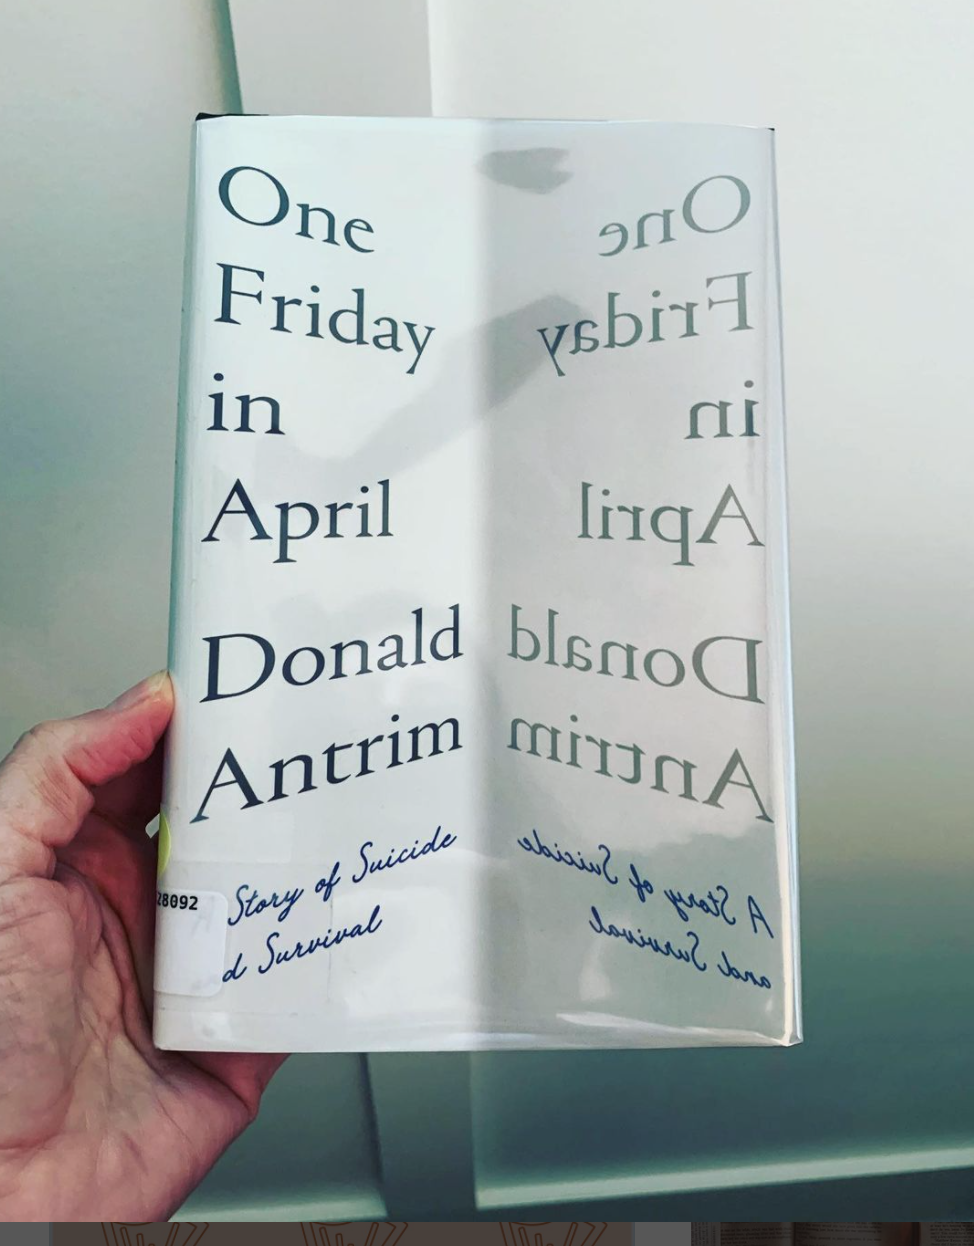 One
Friday
in
April
Donald
Antrim
Story of Suicide
d Survival
28092
One
Friday
in
April
Donald
Antrim
A Story of Suicide
and Survival